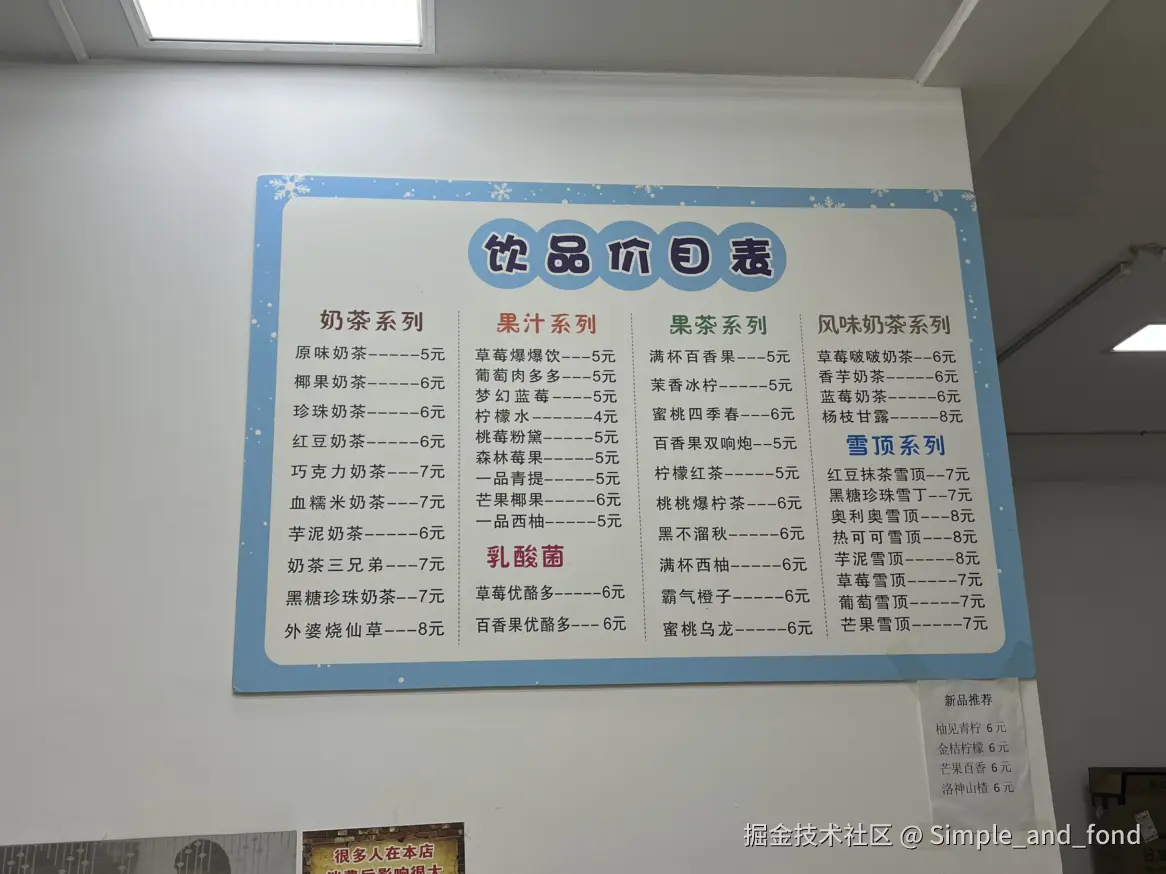 饮品价目表
奶茶系列
原味奶茶-----5元
椰果奶茶-----6元
珍珠奶茶-----6元
红豆奶茶-----6元
巧克力奶茶---7元
血糯米奶茶---7元
芋泥奶茶-----6元
奶茶三兄弟---7元
黑糖珍珠奶茶--7元
外婆烧仙草---8元
果汁系列
草莓爆爆饮---5元
葡萄肉多多---5元
梦幻蓝莓----5元
柠檬水------4元
桃莓粉黛-----5元
森林莓果-----5元
一品青提-----5元
芒果椰果-----6元
一品西柚-----5元
乳酸菌
草莓优酪多-----6元
百香果优酪多---6元
果茶系列
满杯百香果---5元
茉香冰柠-----5元
蜜桃四季春---6元
百香果双响炮--5元
柠檬红茶-----5元
桃桃爆柠茶---6元
黑不溜秋-----6元
满杯西柚-----6元
霸气橙子-----6元
蜜桃乌龙-----6元
风味奶茶系列
草莓啵啵奶茶--6元
香芋奶茶-----6元
蓝莓奶茶-----6元
杨枝甘露-----8元
雪顶系列
红豆抹茶雪顶--7元
黑糖珍珠雪丁--7元
奥利奥雪顶---8元
热可可雪顶---8元
芋泥雪顶-----8元
草莓雪顶-----7元
葡萄雪顶-----7元
芒果雪顶-----7元
新品推荐
柚见青柠 6元
金桔柠檬 6元
芒果百香 6元
洛神山楂 6元
很多人在本店
消费后影响很大
掘金技术社区 @ Simple_and_fond